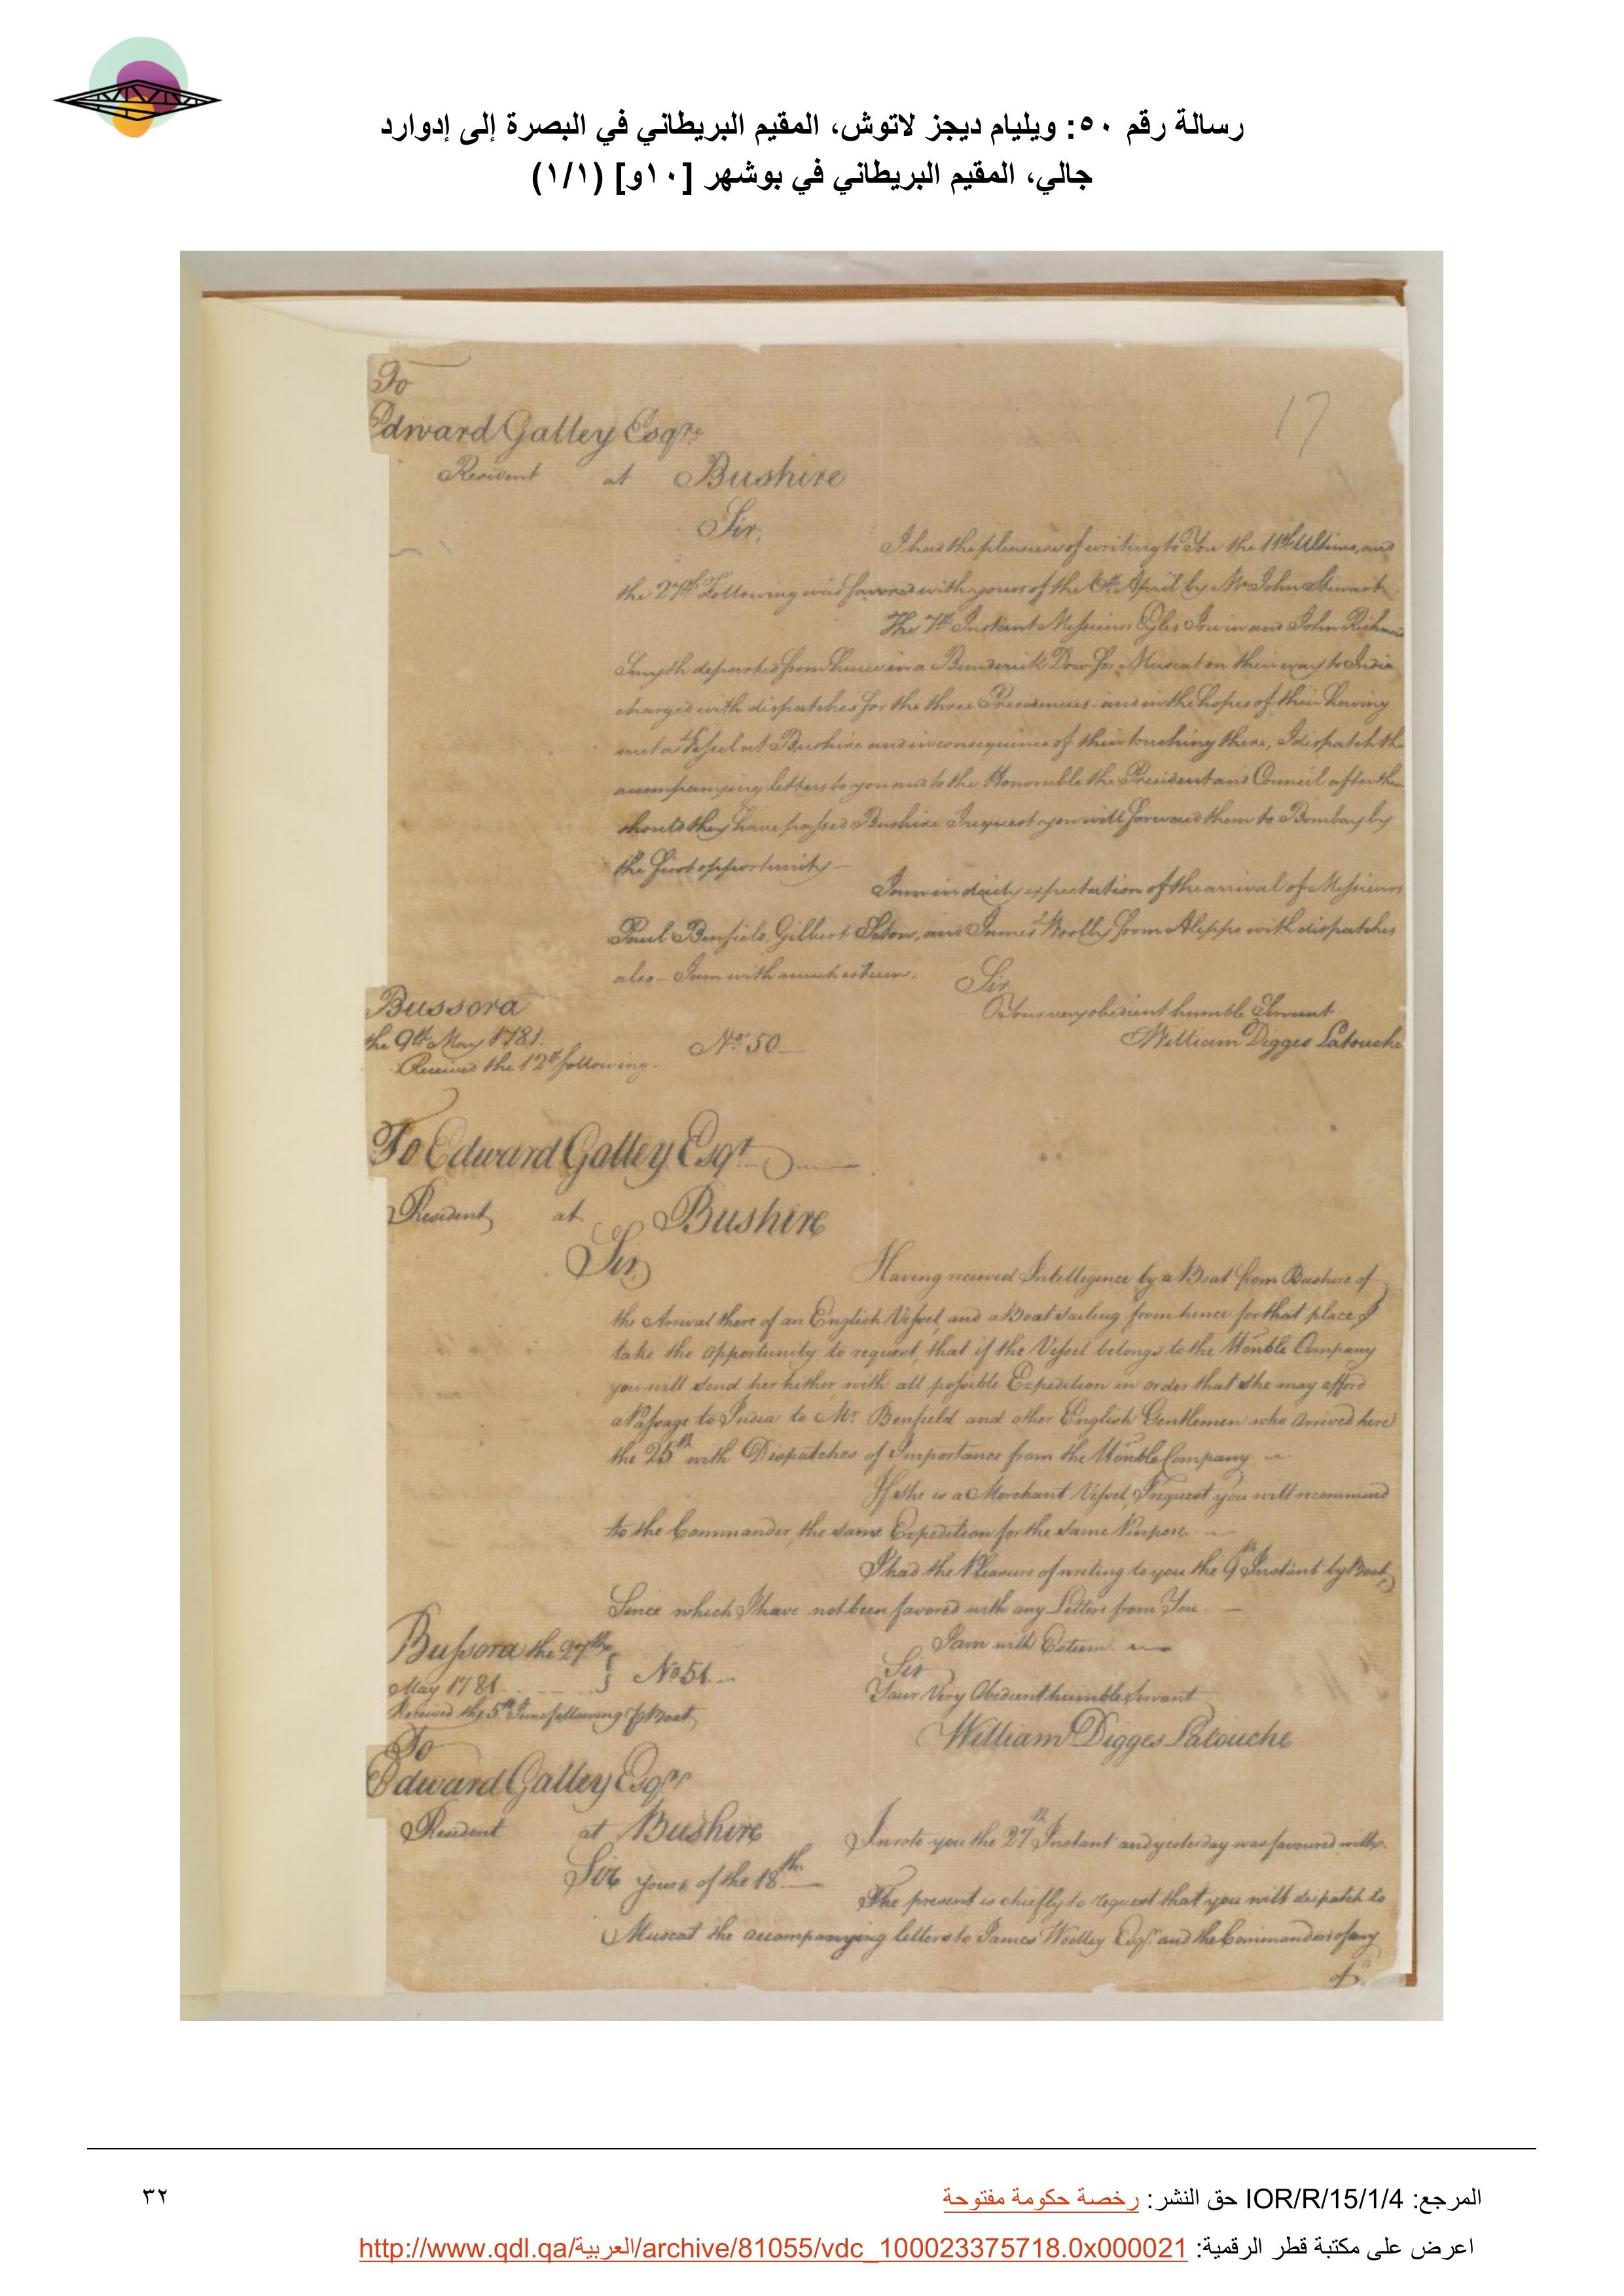 رسالة رقم ٥٠: ويليام ديجز لاتوش، المقيم البريطاني في البصرة إلى إدوارد
جالي، المقيم البريطاني في بوشهر [١٠و] (١/١)
17
To
Edward Galley Esqre
Resident at Bushire
Sir,
I had the pleasure of writing to You the 11th Ultimo, and
the 27th Following was favored with yours of the 6th April by Mr John Stewart.
The 7th Instant Messieurs Eyles Irwin and John Richmd
Smyth departed from hence in a Bunderick Dow for Muscat on their way to India
charged with dispatches for the three Presidencies and in the hopes of their having
met a Vessel at Bushire and in consequence of their touching there, I dispatch the
accompanying letters to you and to the Honorable the President and Council after them
should they have passed Bushire I request you will forward them to Bombay by
the first opportunity —
I am in daily expectation of the arrival of Messieurs
Paul Benfield, Gilbert Seton, and James Woolly from Aleppo with dispatches
also — I am with much esteem.
Sir
Your very obedient humble Servant
William Digges Latouche
Bussora
the 9th May 1781.
Received the 12th following.
No. 50 —
To Edward Galley Esqr.
Resident at Bushire
Sir,
Having received Intelligence by a Boat from Bushire of
the Arrival there of an English Vessel, and a Boat sailing from hence for that place I
take the opportunity to request, that if the Vessel belongs to the Honble Company
you will send her hither with all possible Expedition in order that she may afford
a Passage to India to Mr. Benfield and other English Gentlemen who arrived here
the 25th with Dispatches of Importance from the Honble Company. —
If she is a Merchant Vessel, I request you will recommend
to the Commander, the same Expedition for the same Purpose. —
I had the Pleasure of writing to you the 9th Instant by Boat,
Since which I have not been favored with any Letters from You. —
I am with Esteem. —
Sir
Your Very Obedient humble Servant
William Digges Latouche
Bussora the 27th
May 1781
No 51. —
Received the 5th June following P Boat
To
Edward Galley Esqr.
Resident at Bushire
Sir
I wrote you the 27th Instant and yesterday was favoured with
yours of the 18th —
The present is chiefly to request that you will dispatch to
Muscat the accompanying letters to James Woolley Esqr. and the Commanders of any
of
المرجع: IOR/R/15/1/4 حق النشر: رخصة حكومة مفتوحة
٣٢
اعرض على مكتبة قطر الرقمية: http://www.qdl.qa/العربية/archive/81055/vdc_100023375718.0x000021